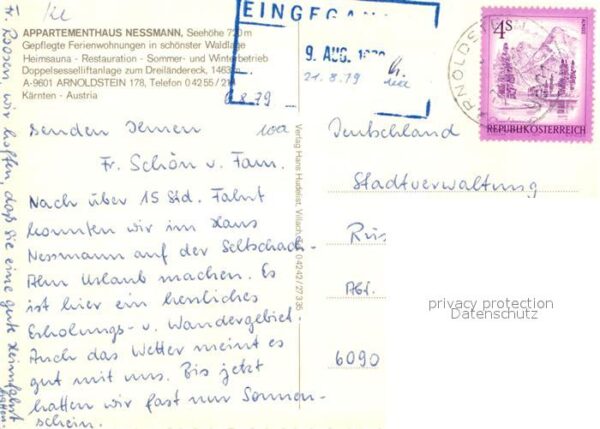 APPARTEMENTHAUS NESSMANN, Seehöhe 720 m
Gepflegte Ferienwohnungen in schönster Waldlage
Heimsauna - Restauration - Sommer- und Winterbetrieb
Doppelsesselliftanlage zum Dreiländereck, 1463 m
A-9601 ARNOLDSTEIN 178, Telefon 0 42 55 / 21
Kärnten - Austria
EINGEGAN
9. AUG.
21.8.79
6.8.79
4S
REPUBLIK ÖSTERREICH
ARNOLDST
senden Ihnen
Fr. Schön u. Fam.
Nach über 15 Std. Fahrt
konnten wir im Haus
Nessmann auf der Seltschach-
Alm Urlaub machen. Es
ist hier ein herrliches
Erholungs- u. Wandergebiet.
Auch das Wetter meint es
gut mit uns. Bis jetzt
hatten wir fast nur Sonnen-
schein.
Fr. Roosen, wir hoffen, daß sie eine gute Heimfahrt
hatten.
Verlag Hans Huderlist, Villach, Tel. 0 42 42 / 27 3 35
Deutschland
Stadtverwaltung
Rüs
Abt.
6090
privacy protection
Datenschutz